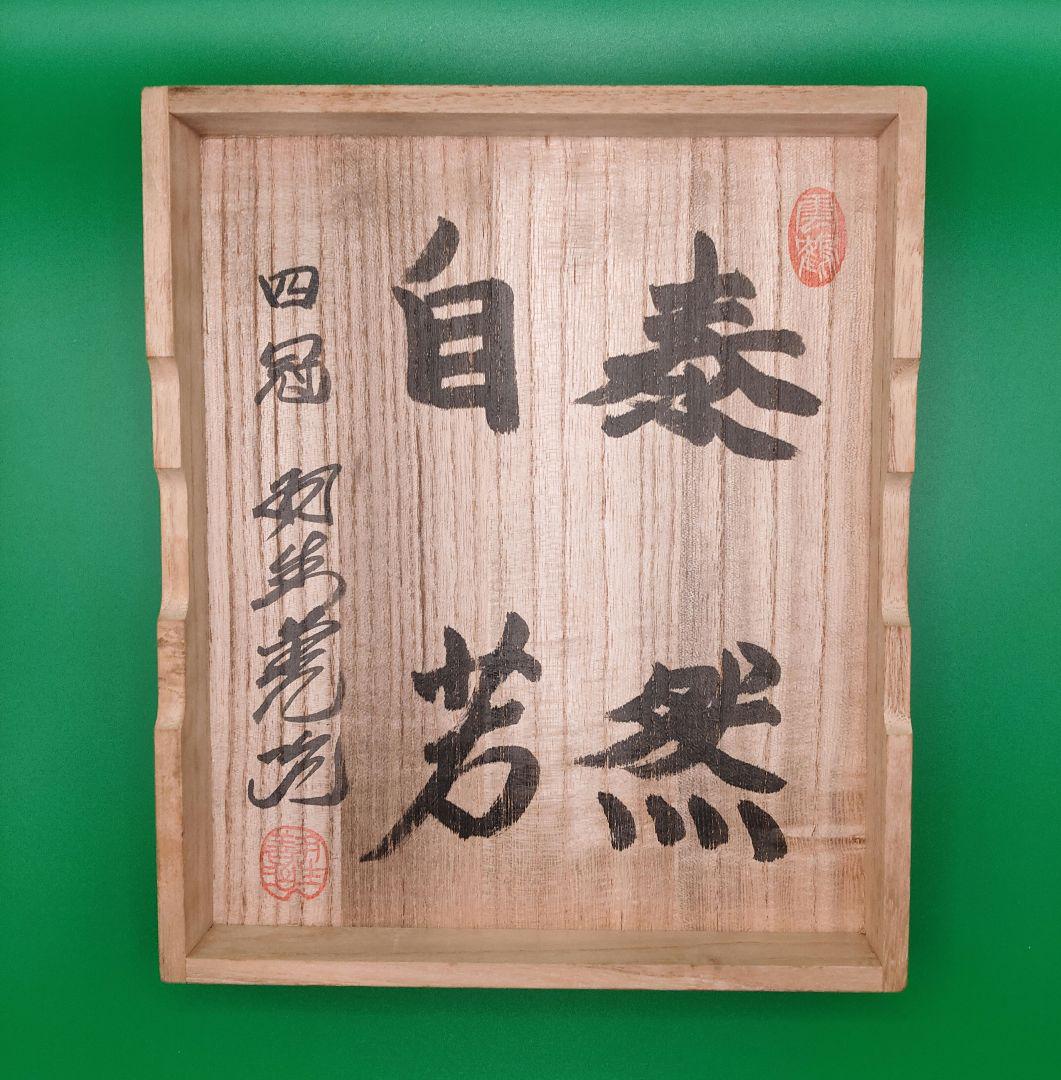 泰然
自若
四冠 羽生善治